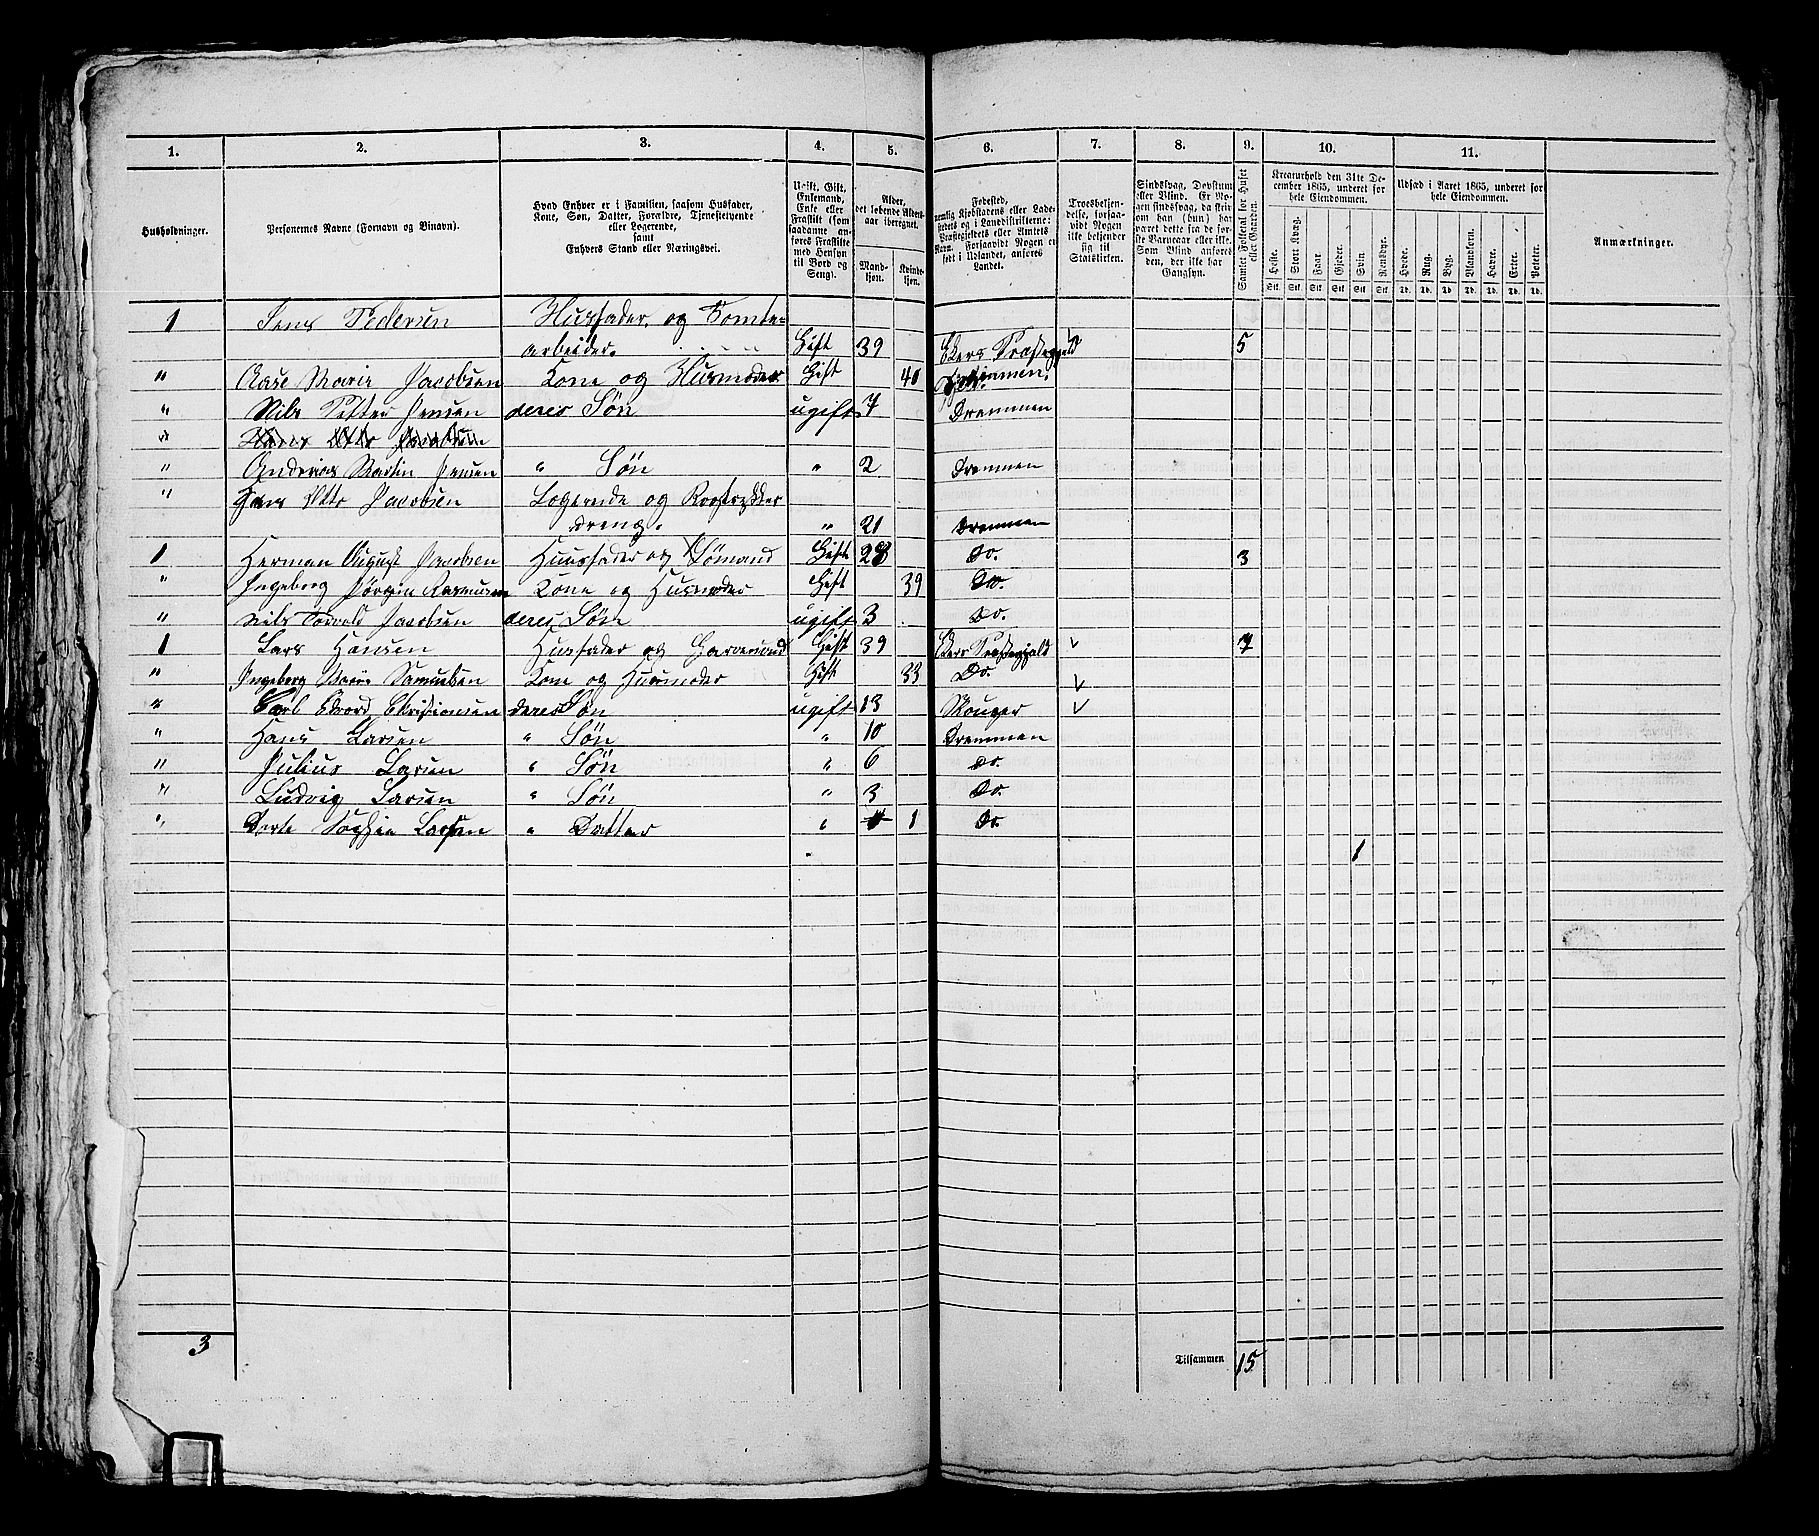 1. 2. 3. 4. 5. 6. 7. 8. 9. 10. 11.
Husholdninger.
Personernes Navne (Fornavn og Binavn).
Hvad Enhver er i Familien, saasom Husfader,
Kone, Søn, Datter, Forældre, Tjenestetyende
eller Logerende,
samt
Enhvers Stand eller Næringsvei.
Ugift, Gift,
Enkemand,
Enke eller
Fraskilt (som
saadanne an-
føres Fraskilte
med Hensyn
til Bord og
Seng).
Alder,
det løbende Alders-
aar iberegnet.
Mand-
kjøn.
Kvind-
kjøn.
Fødested,
nemlig Kjøbstadens eller Lade-
stedets og i Landdistrikterne:
Præstegjeldets eller Amtets
Navn. Forsaavidt Nogen er
født i Udlandet, anføres
Landet.
Troesbekjen-
delse, forsaa-
vidt Nogen
ikke bekjender
sig til
Statskirken.
Sindssvag, Døvstum
eller Blind. Er No-
gen sindssvag, da skriv
om han (hun) har
været dette fra de for-
ste Barneaar eller ikke.
Som Blind anføres
den, der ikke har
Gangsyn.
Samlet Folketal for Huset
eller Gaarden.
Kreaturhold den 31te De-
cember 1865, underet for
hele Eiendommen.
Heste. Stort Kvæg. Faar. Gjeder. Svin. Rensdyr.
Stk. Stk. Stk. Stk. Stk. Stk.
Udsæd i Aaret 1865, underet for
hele Eiendommen.
Hvede. Rug. Byg. Blandkorn. Havre. Erter. Poteter.
Td. Td. Td. Td. Td. Td. Td.
Anmærkninger.
1 Jens Pedersen Husfader, og Tomte-
arbeider. Gift 39 Ekers Præstegjeld 5
" Aase Marie Jacobsen Kone og Husmoder Gift 40 Drammen.
" Nils Petter Jensen deres Søn ugift 7 Drammen
" Hans Otto Jacobsen
" Andreas Martin Jensen " Søn " 2 Drammen
" Hans Otto Jacobsen Logerende og
dreng. " 21 Drammen
1 Herman August Jacobsen Huusfader og Sømand Gift 28 Do. 3
" Ingeborg Jørgin Rasmusen Kone og Husmoder Gift 39 Do.
" Nils Torvald Jacobsen deres Søn ugift 3 Do.
1 Lars Hansen Husfader og Gift 39 Ekers Præstegjeld 7
" Ingeborg Marie Samuelsen Kone og Huusmoder Gift 33 Do.
" Carl Edvard Christiansen deres Søn ugift 13 Skouger
" Hans Larsen " Søn " 10 Drammen
" Julius Larsen " Søn " 6 Do.
" Ludvig Larsen " Søn " 3 Do.
" Dorte Sophie Larsen " Datter " 1 Do.
1
3 Tilsammen 15